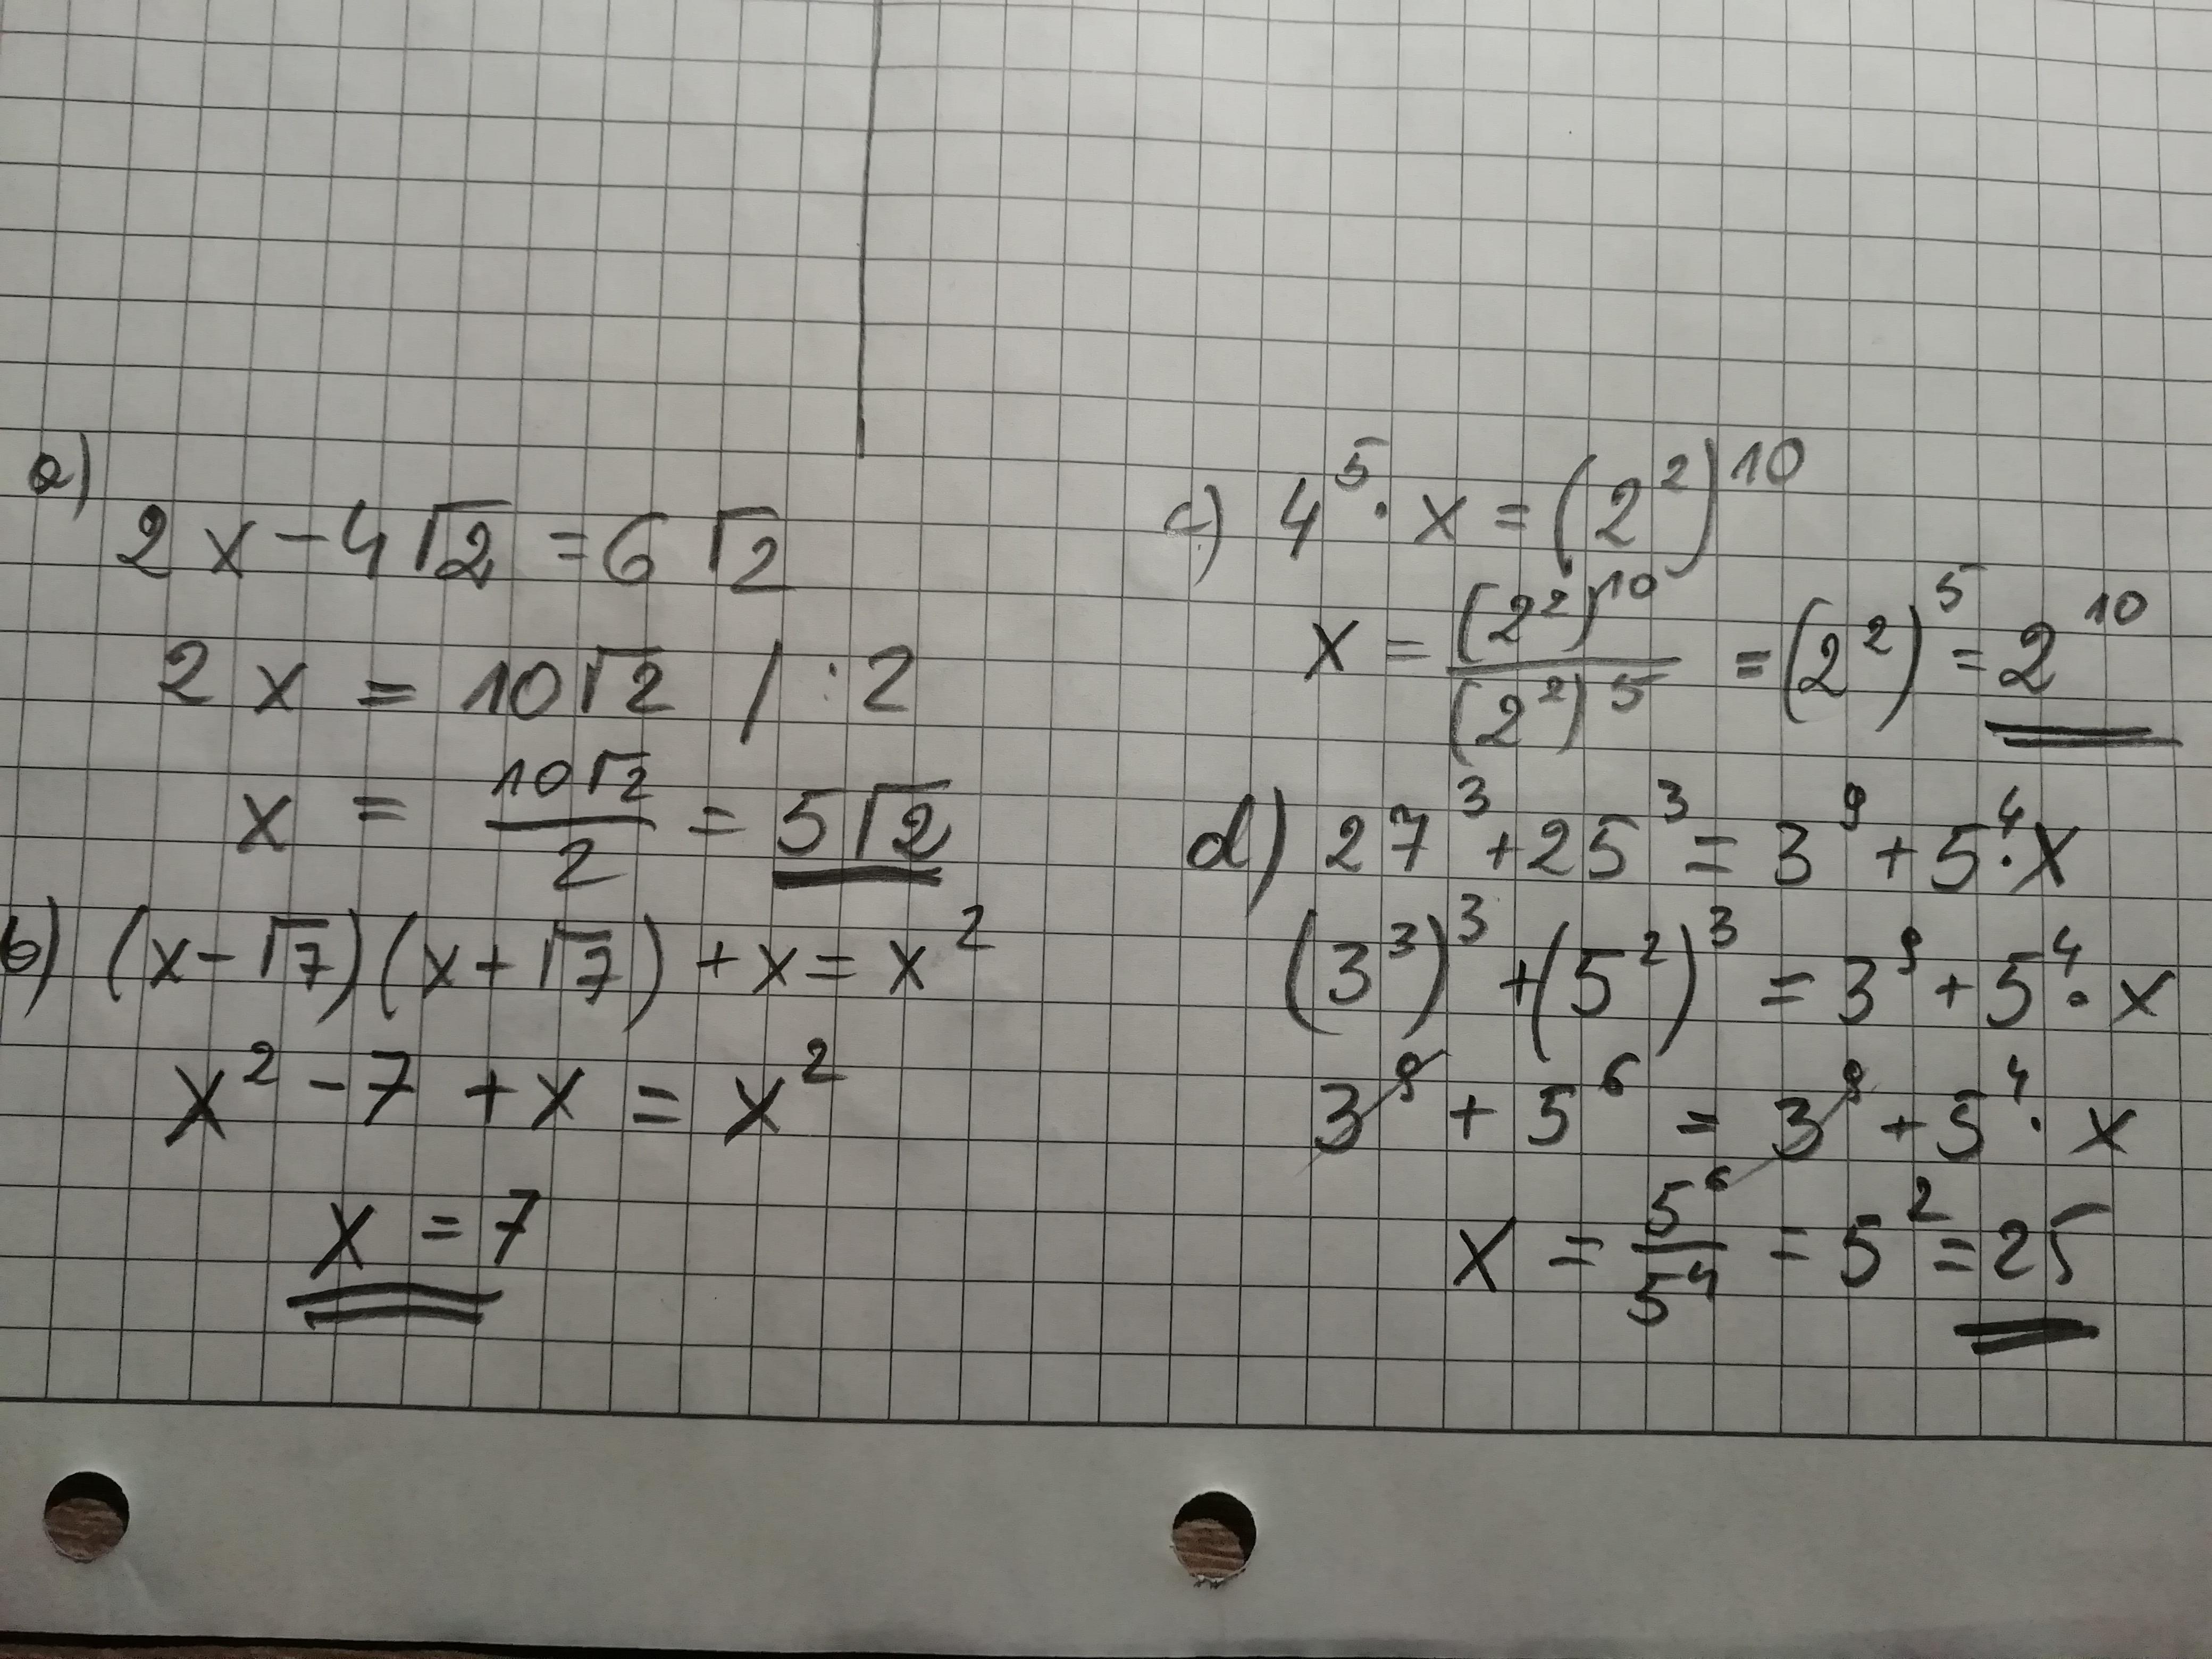 a)
2x - 4√2 = 6√2
2x = 10√2 / : 2
x = 10√2/2 = 5√2
b) (x - √7)(x + √7) + x = x²
x² - 7 + x = x²
x = 7
c) 4⁵ · x = (2²)¹⁰
x = (2²)¹⁰/(2²)⁵ = (2²)⁵ = 2¹⁰
d) 27³ + 25³ = 3⁹ + 5⁴ · x
(3³)³ + (5²)³ = 3⁹ + 5⁴ · x
3⁹ + 5⁶ = 3⁹ + 5⁴ · x
x = 5⁶/5⁴ = 5² = 25